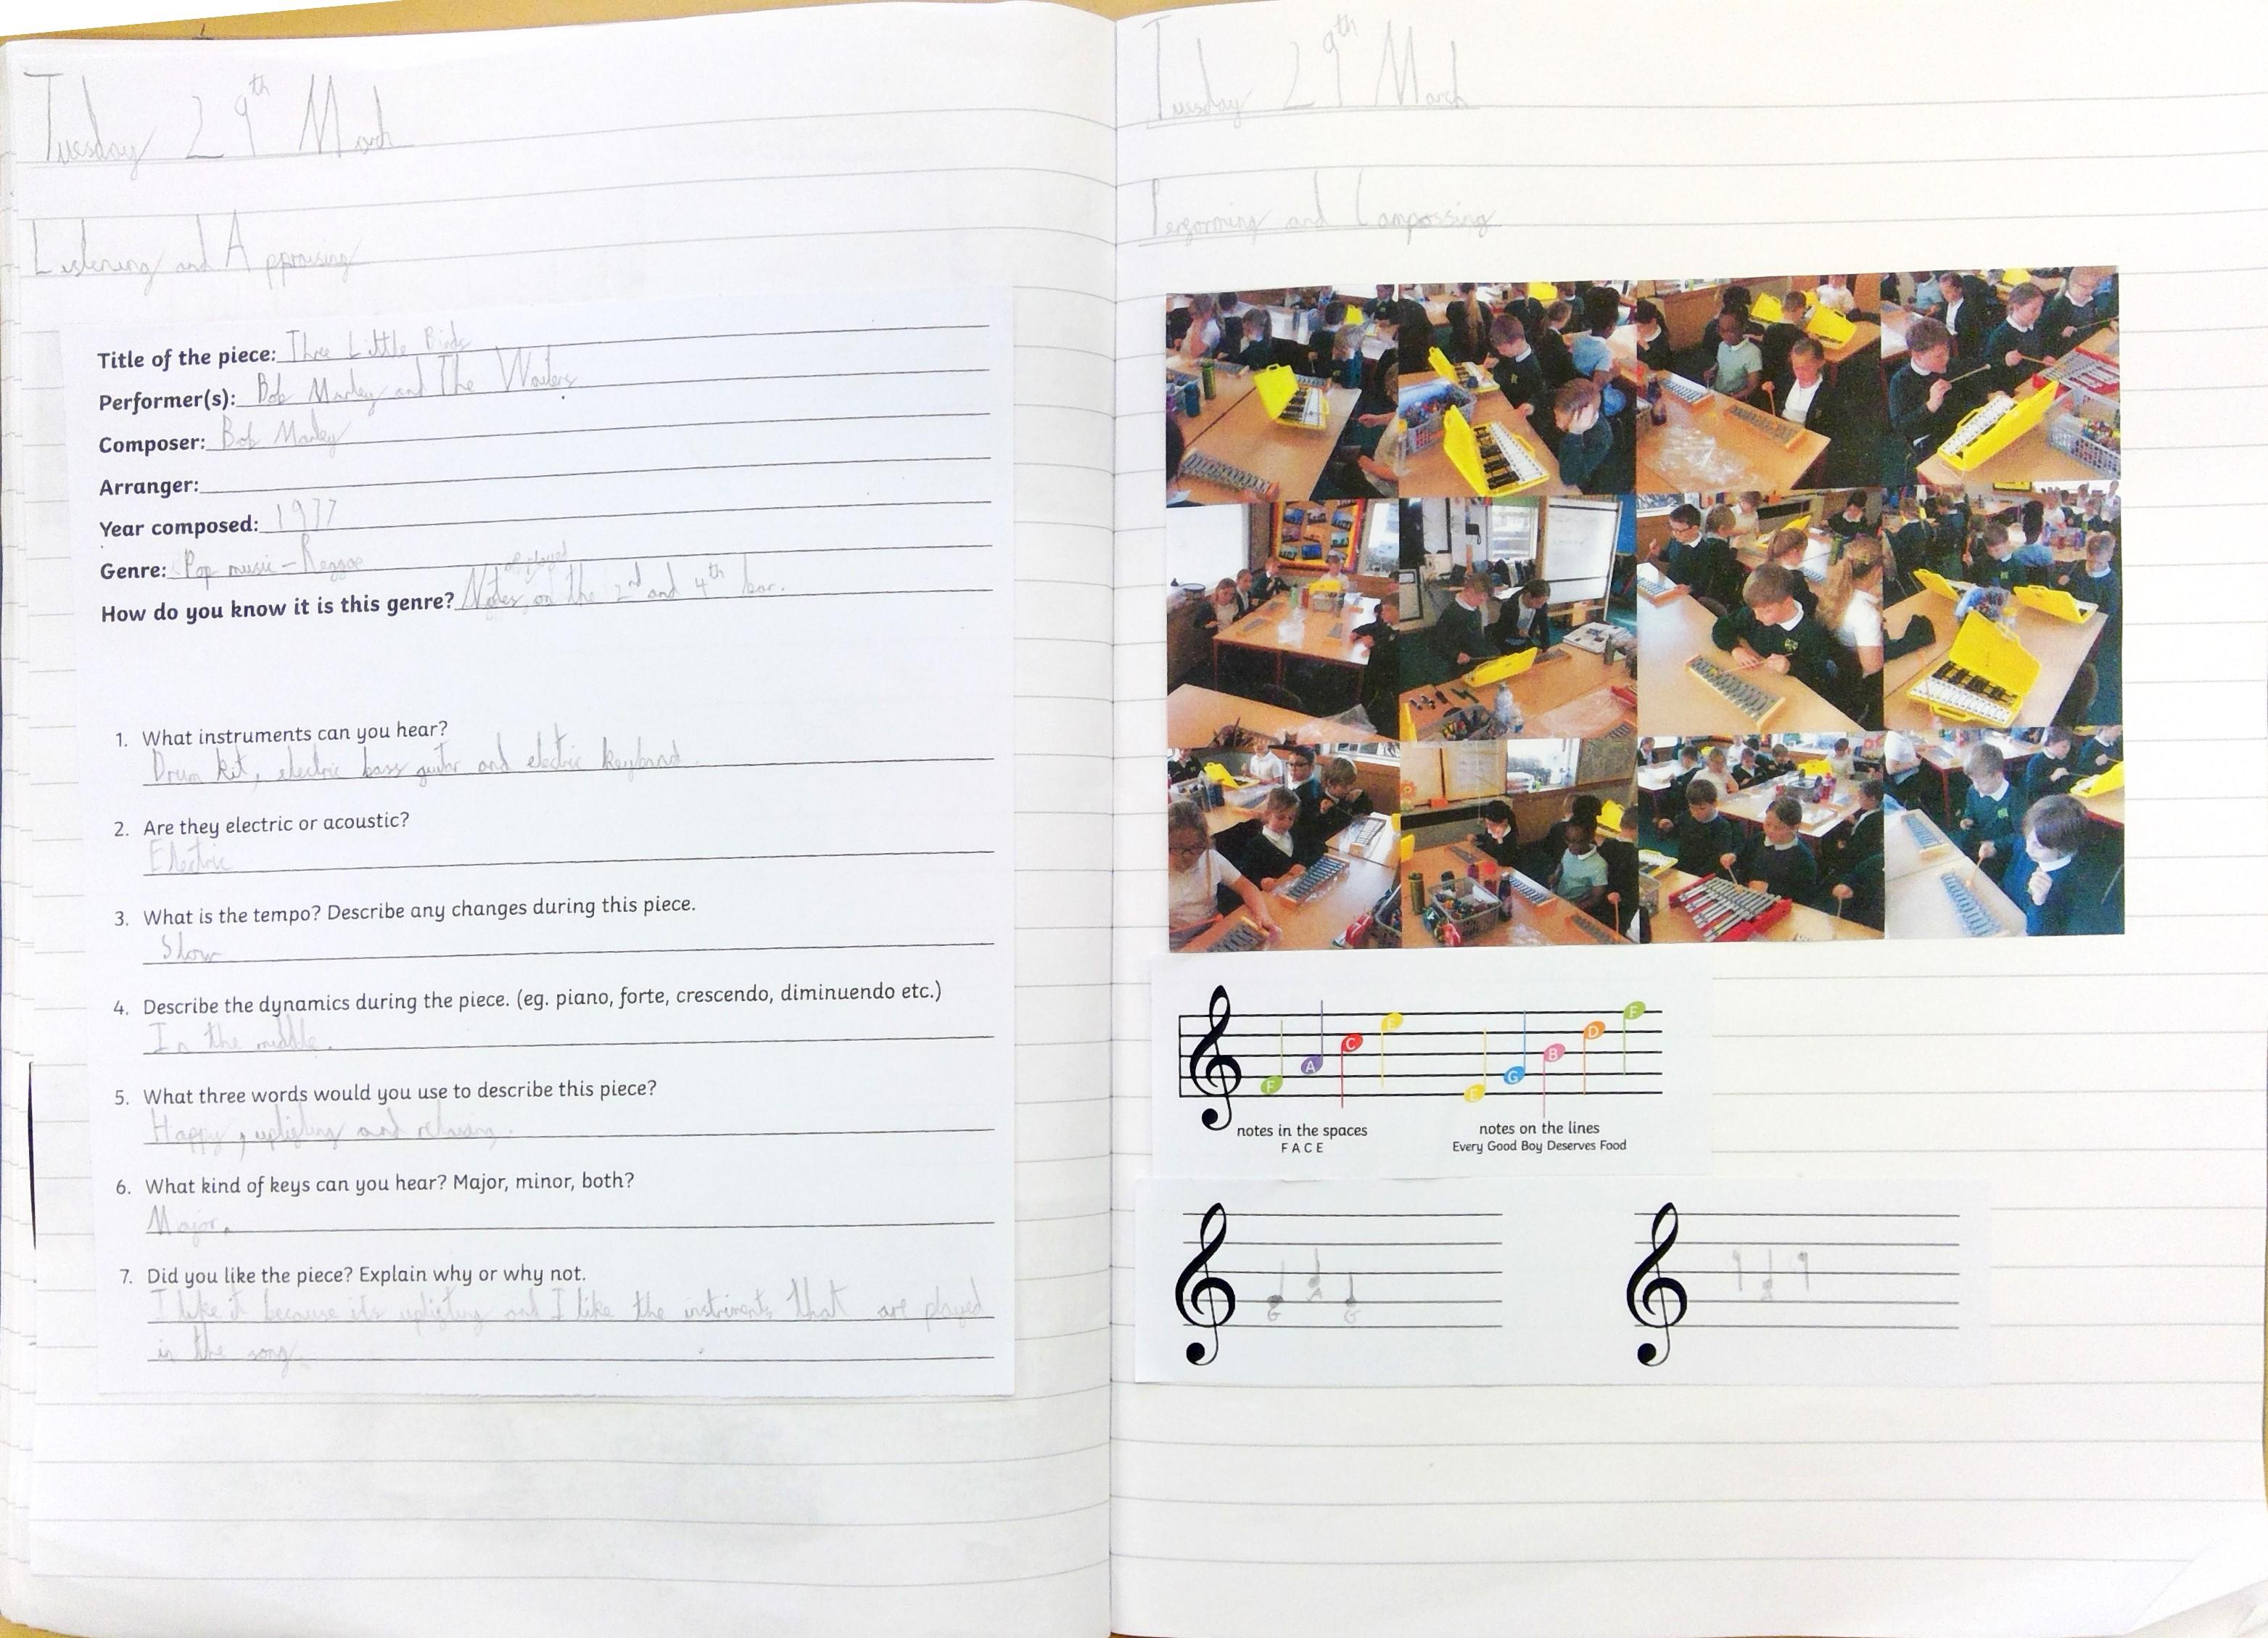 Tuesday 29th March
Listening and Appraising
Title of the piece: Three Little Birds
Performer(s): Bob Marley and The Wailers
Composer: Bob Marley
Arranger:
Year composed: 1977
Genre: Pop music - Reggae
How do you know it is this genre? Notes are played on the 2nd and 4th bar.
1. What instruments can you hear?
Drum kit, electric bass guitar and electric keyband.
2. Are they electric or acoustic?
Electric
3. What is the tempo? Describe any changes during this piece.
Slow
4. Describe the dynamics during the piece. (eg. piano, forte, crescendo, diminuendo etc.)
In the middle.
5. What three words would you use to describe this piece?
Happy, uplifting and relaxing.
6. What kind of keys can you hear? Major, minor, both?
Major.
7. Did you like the piece? Explain why or why not.
I like it because its uplifting and I like the instriments that are played
in the song.
Tuesday 29th March
Performing and Compossing
F A C E E G B D F
notes in the spaces
F A C E
notes on the lines
Every Good Boy Deserves Food
G A G